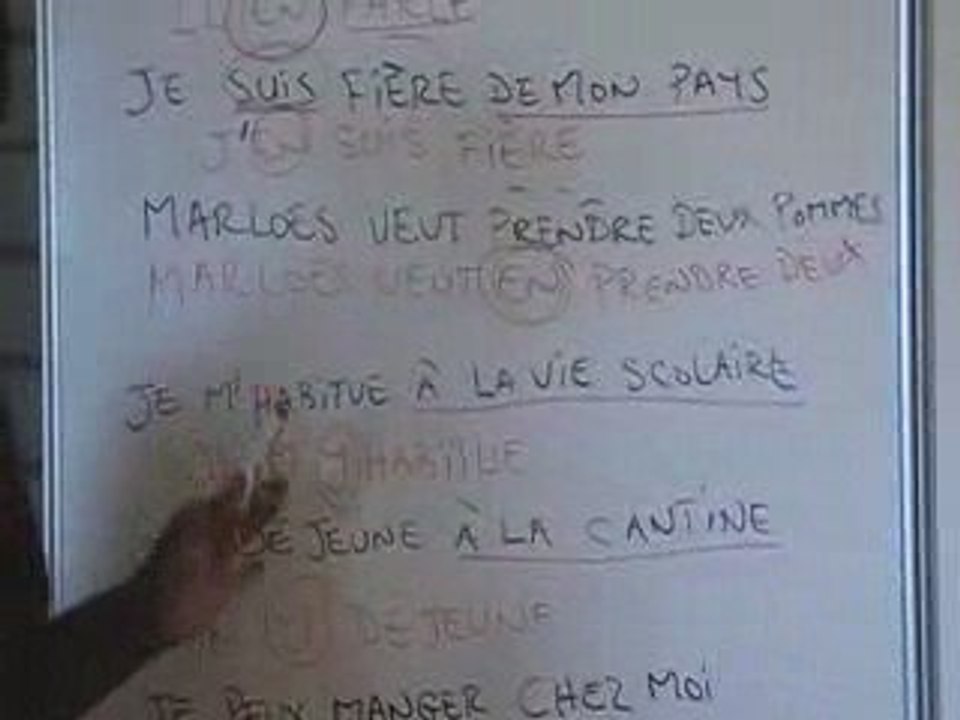 EN PARLE
JE SUIS FIÈRE DE MON PAYS
J'EN SUIS FIÈRE
MARLOES VEUT PRENDRE DEUX POMMES
MARLOES VEUT EN PRENDRE DEUX
JE M'HABITUE À LA VIE SCOLAIRE
M'Y HABITUE
DEJEUNE À LA CANTINE
Y DEJEUNE
JE PEUX MANGER CHEZ MOI